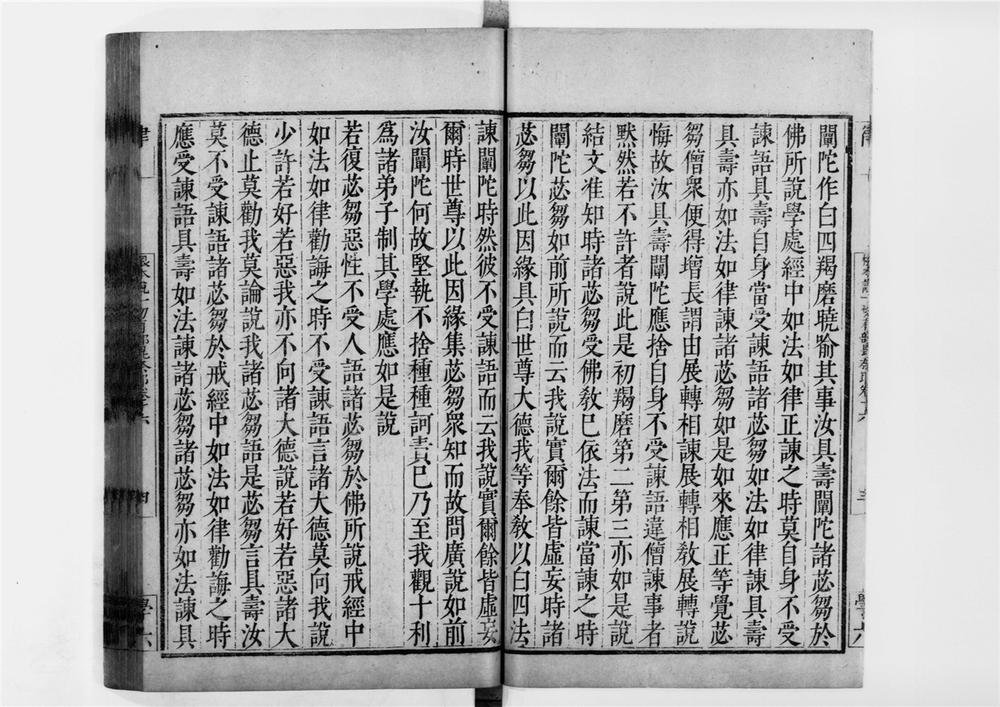 闡陀作白四羯磨曉喻其事汝具壽闡陀諸苾芻於
佛所說學處經中如法如律正諫之時莫自身不受
諫語具壽自身當受諫語諸苾芻如法如律諫具壽
具壽亦如法如律諫諸苾芻如是如來應正等覺苾
芻僧衆便得增長謂由展轉相諫展轉相敎展轉說
悔故汝具壽闡陀應捨自身不受諫語違僧諫事者
默然若不許者說此是初羯磨第二第三亦如是說
結文准知時諸苾芻受佛敎已依法而諫當諫之時
闡陀苾芻如前所說而云我說實爾餘皆虛妄時諸
苾芻以此因緣具白世尊大德我等奉敎以白四法
諫闡陀時然彼不受諫語而云我說實爾餘皆虛妄
爾時世尊以此因緣集苾芻衆知而故問廣說如前
汝闡陀何故堅執不捨種種訶責已乃至我觀十利
爲諸弟子制其學處應如是說
若復苾芻惡性不受人語諸苾芻於佛所說戒經中
如法如律勸誨之時不受諫語言諸大德莫向我說
少許若好若惡我亦不向諸大德說若好若惡諸大
德止莫勸我莫論說我諸苾芻語是苾芻言具壽汝
莫不受諫語諸苾芻於戒經中如法如律勸誨之時
應受諫語具壽如法諫諸苾芻諸苾芻亦如法諫具